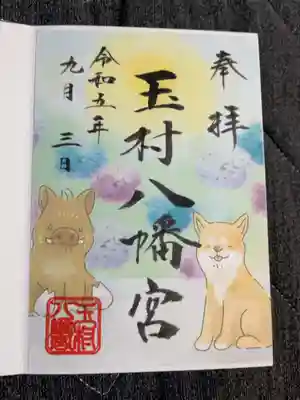 奉拝
玉村八幡宮
令和五年
九月三日
玉村
八幡宮